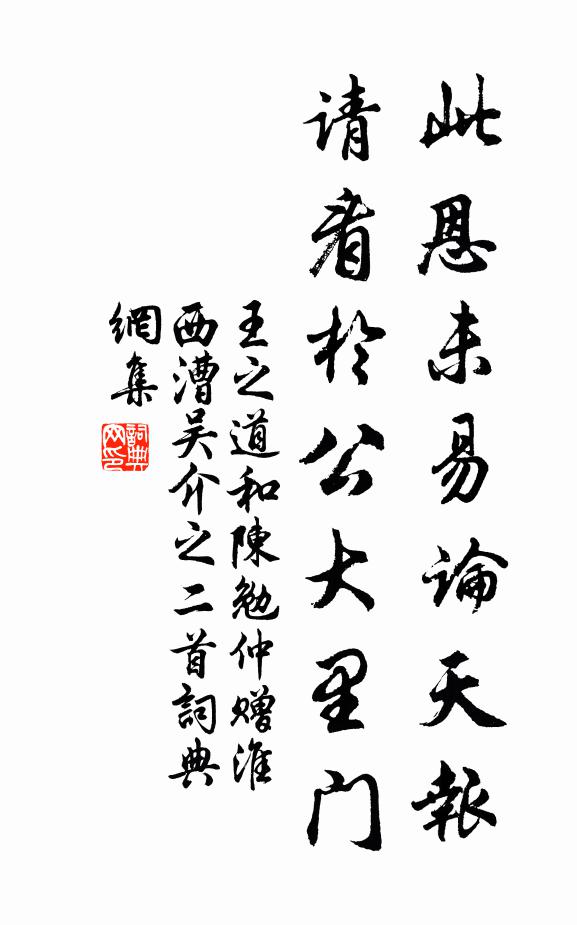 此恩未易論天報
请看於公大里门
王之道和陳勉仲贈淮
西漕吴介之二首詞典
網集
詞典
网印